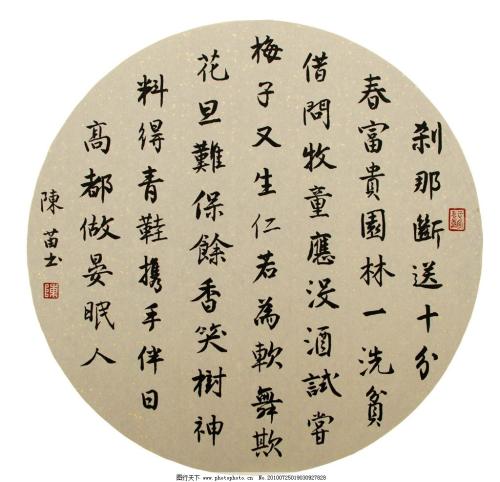 刹那斷送十分
春富貴園林一洗貧
借問牧童應没酒試嘗
梅子又生仁若為軟舞欺
花旦難保餘香笑樹神
料得青鞋携手伴日
高都做晏眠人
陳苗书
陳
图行天下 www.photophoto.cn No.20100725019030927828